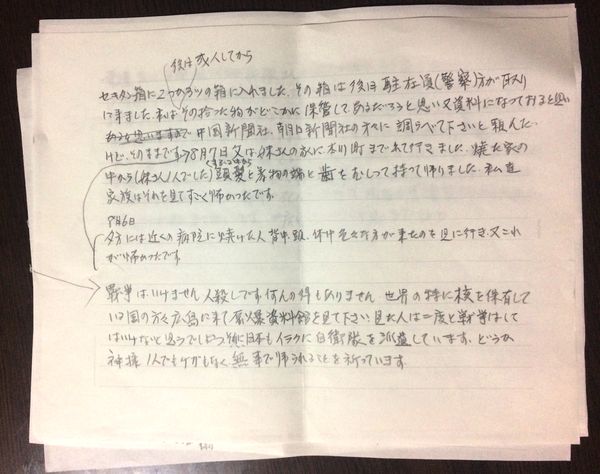 後は成人してから
セキタン箱に2つか3つの箱に入れました。その箱は後は駐在後(警察)方が取り
に来ました。私はその拾った物がどこかに保管してあるだろうと思い又資料になっておると思い
で中国新聞社、朝日新聞社の方々に調らべて下さいと頼んだ
けど、そのままです。8月7日父は妹さんの家に水川町までたずねて行きました。焼た家の
中から(妹さん1人でした)頭髪と着物の端と歯をむしって持って帰りました。私達
家族はそれを見てすごく怖かったです。
8月6日
夕方には近くの病院に焼けた人背中、頭、体中色々な方が来たのを見に行き、又これ
が怖かったです。
戦争はいけません人殺しです。何んの得もありません。世界の特に核を保有して
いる国の方々広島に来て原爆資料館を見て下さい。見た人は二度と戦争はして
はいけないと思うでしょう。特に日本もイラクに自衛隊を派遣しています。どうか
神様1人でもケガもなく無事で帰られることを祈っています。